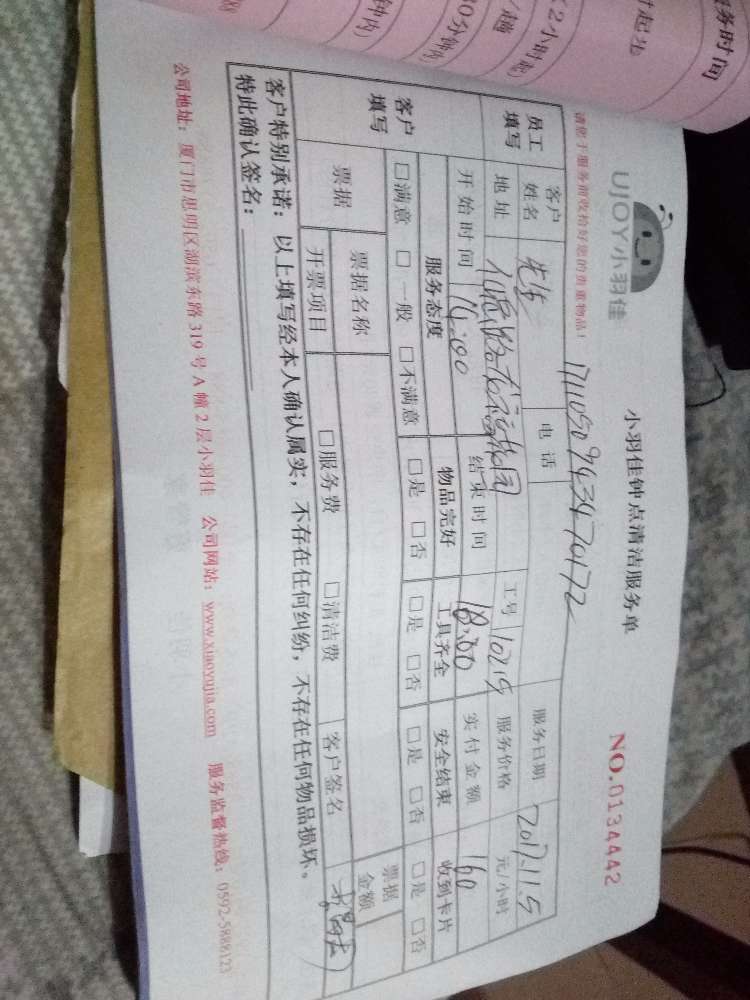 务时间
时起步
(2小时起)
/趟
0分钟内)
钟内)
UJOY小羽佳
小羽佳钟点清洁服务单
NO.0134442
请您于服务前收拾好您的贵重物品!
1711050943470172
员工填写
客户姓名 先生 电话 服务日期 2017.11.5
地址 工号 10215 服务价格 元/小时
开始时间 14:00 结束时间 18:00 实付金额 160
客户填写
服务态度 物品完好 工具齐全 安全结束 收到卡片
□满意 □一般 □不满意 □是 □否 □是 □否 □是 □否 □是 □否
票据 票据名称 票据金额
开票项目 □服务费 □清洁费 客户签名
客户特别承诺:以上填写经本人确认属实,不存在任何纠纷,不存在任何物品损坏。
特此确认签名:
公司地址:厦门市思明区湖滨东路319号A幢2层小羽佳 公司网站:www.xiaoyujia.com 服务监督热线:0592-5888123